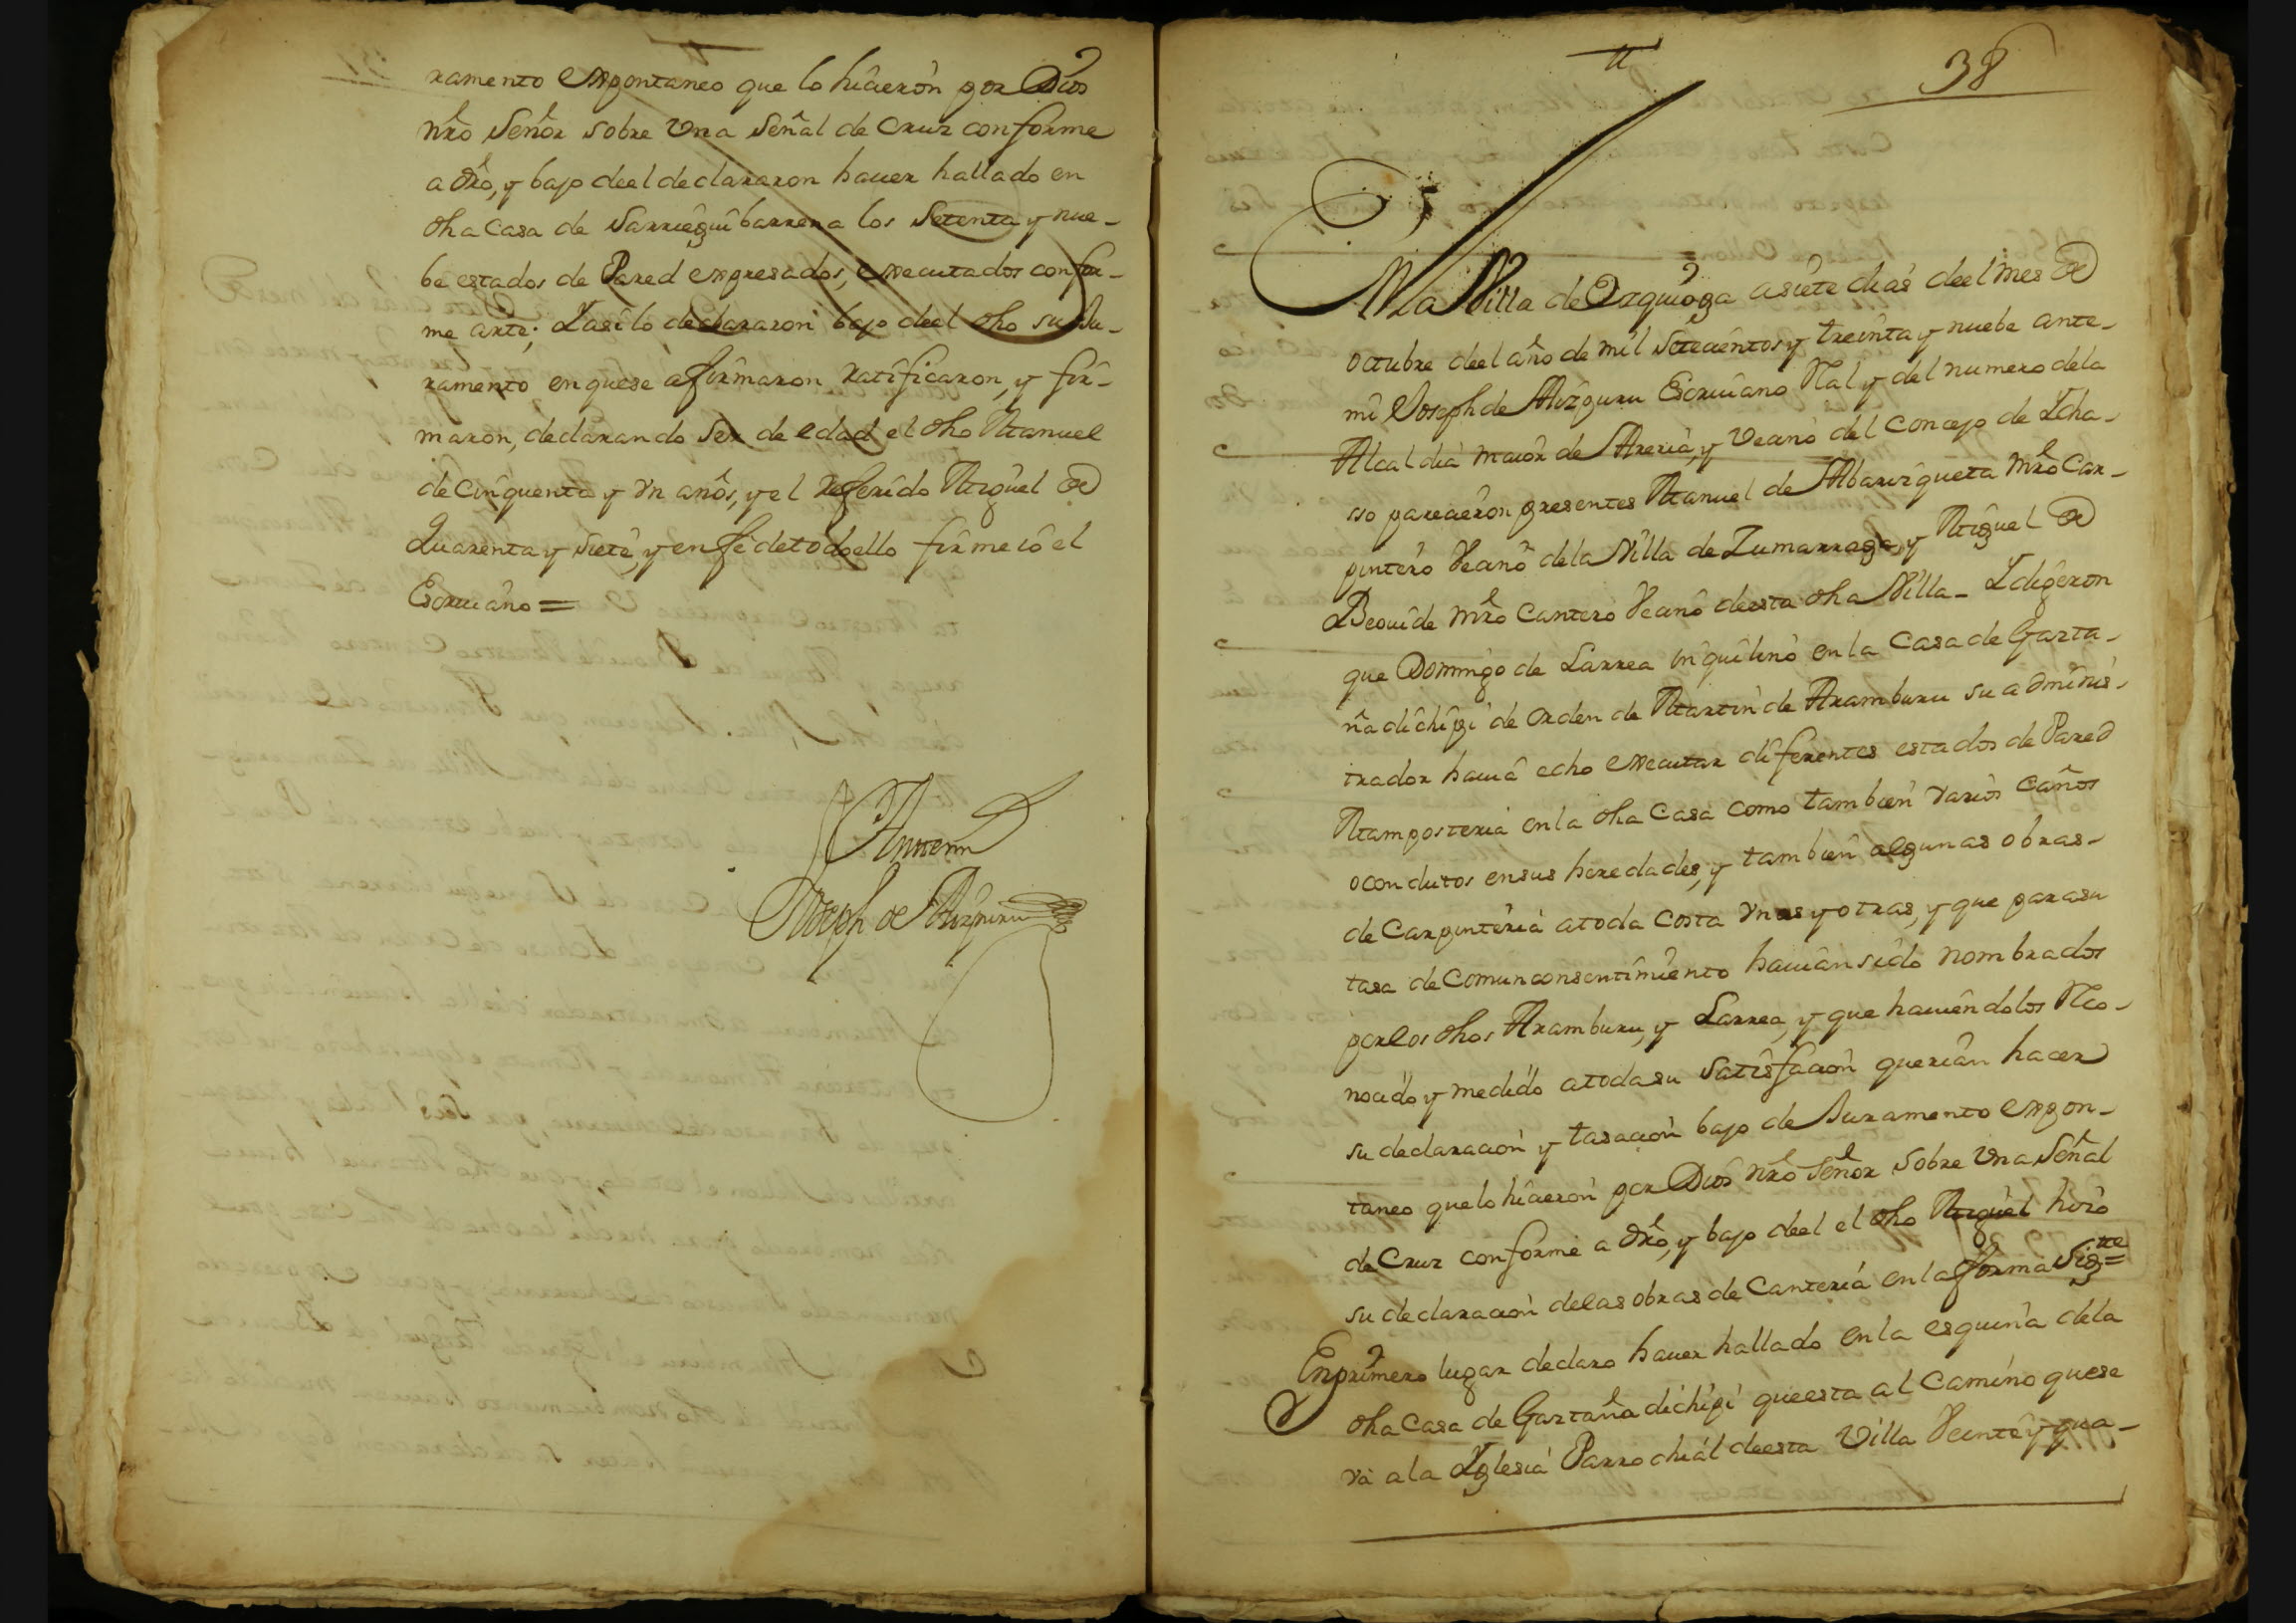 ramento expontaneo que lo hicieron por Dios
nro Señor sobre Una Señal de Cruz conforme
a dro, y bajo deel declararon hauer hallado en
dha Casa de Sarrieguibarrena los Setenta y nue-
be estados de Pared expresados, executados confor-
me arte; Y asi lo declararon bajo deel dho su Ju-
ramento en quese afirmaron ratificaron, y fir-
maron, declarando ser de edad el dho Manuel
de Cinquenta y Un años, y el referido Miguel de
Quarenta y siete, y en fe detodoello firme io el
Escriuano =
Antemi
Joseph de Aizpuru
38
En la Villa de Ezquioga a siete dias deel mes de
octubre deel año de mil Setecientos y treinta y nuebe ante-
mi Joseph de Aizpuru Escriuano Real y del numero dela
Alcaldia maior de Areria, y Vecino del Concejo de Ycha-
sso parecieron presentes Manuel de Albarizqueta Mro Car-
pintero Vecino dela Villa de Zumarraga, y Miguel de
Beouide Mro Cantero Vecino deesta dha Villa - Y digeron
que Domingo de Larrea inquilino en la Casa de Garta-
ña dichipi de orden de Martin de Aramburu su adminis-
trador hauia echo executar diferentes estados de Pared
Mamposteria en la dha Casa como tambien varios Caños
o condutos en sus heredades, y tambien algunas obras-
de Carpinteria atoda costa Unas y otras, y que para su
tasa de Comun consentimiento hauian sido nombrados
por los dhos Aramburu, y Larrea, y que hauiendolos Reco-
nocido y medido atoda su satisfacion querian hacer
su declaracion y tasacion bajo de Juramento expon-
taneo que lo hicieron por Dios nro Señor sobre Una Señal
de Cruz conforme a dro, y bajo deel el dho Miguel hizo
su declaracion delas obras de Canteria en la forma Sigte=
En primero lugar declaro hauer hallado en la esquina dela
dha Casa de Gartaña dichipi queesta al Camino quese
va a la Yglesia Parrochial deesta Villa Veinte y qua-